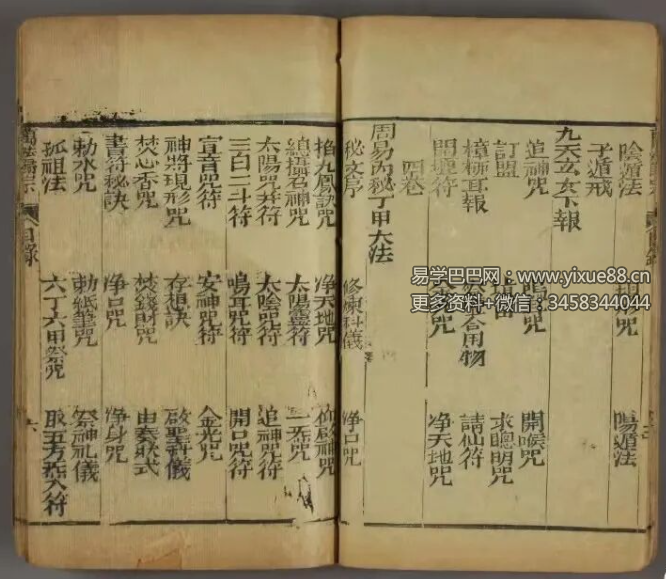 陰遁法 形咒 陽遁法
子遁戒
九天玄女下報
追神咒 鳴咒 開喉咒
訂盟 求聰明咒
樟柳耳報 合用物 請仙符
開壇符 咒 净天地咒
四卷
周易內秘丁甲大法
秘文序 修煉科儀 净口咒
掐九鳳訣咒 净天地咒 仰啟神咒
總攝召神咒 太陽靈符 一炁咒
太陽咒并符 太陰咒符 追神咒符
三百二斗符 鳴耳咒符 開口咒符
宣音咒符 安神咒符 金光咒
神將現形咒 存想訣 啟聖科儀
焚心香咒 焚錢財咒 由奏狀式
書符秘訣 净口咒 净身咒
勅水咒 勅紙筆咒 祭神礼儀
孤祖法 六丁六甲祭咒 取五方炁入符
萬法歸宗 目錄 六
易学巴巴网：www.yixue88.cn
更多资料+微信：3458344044